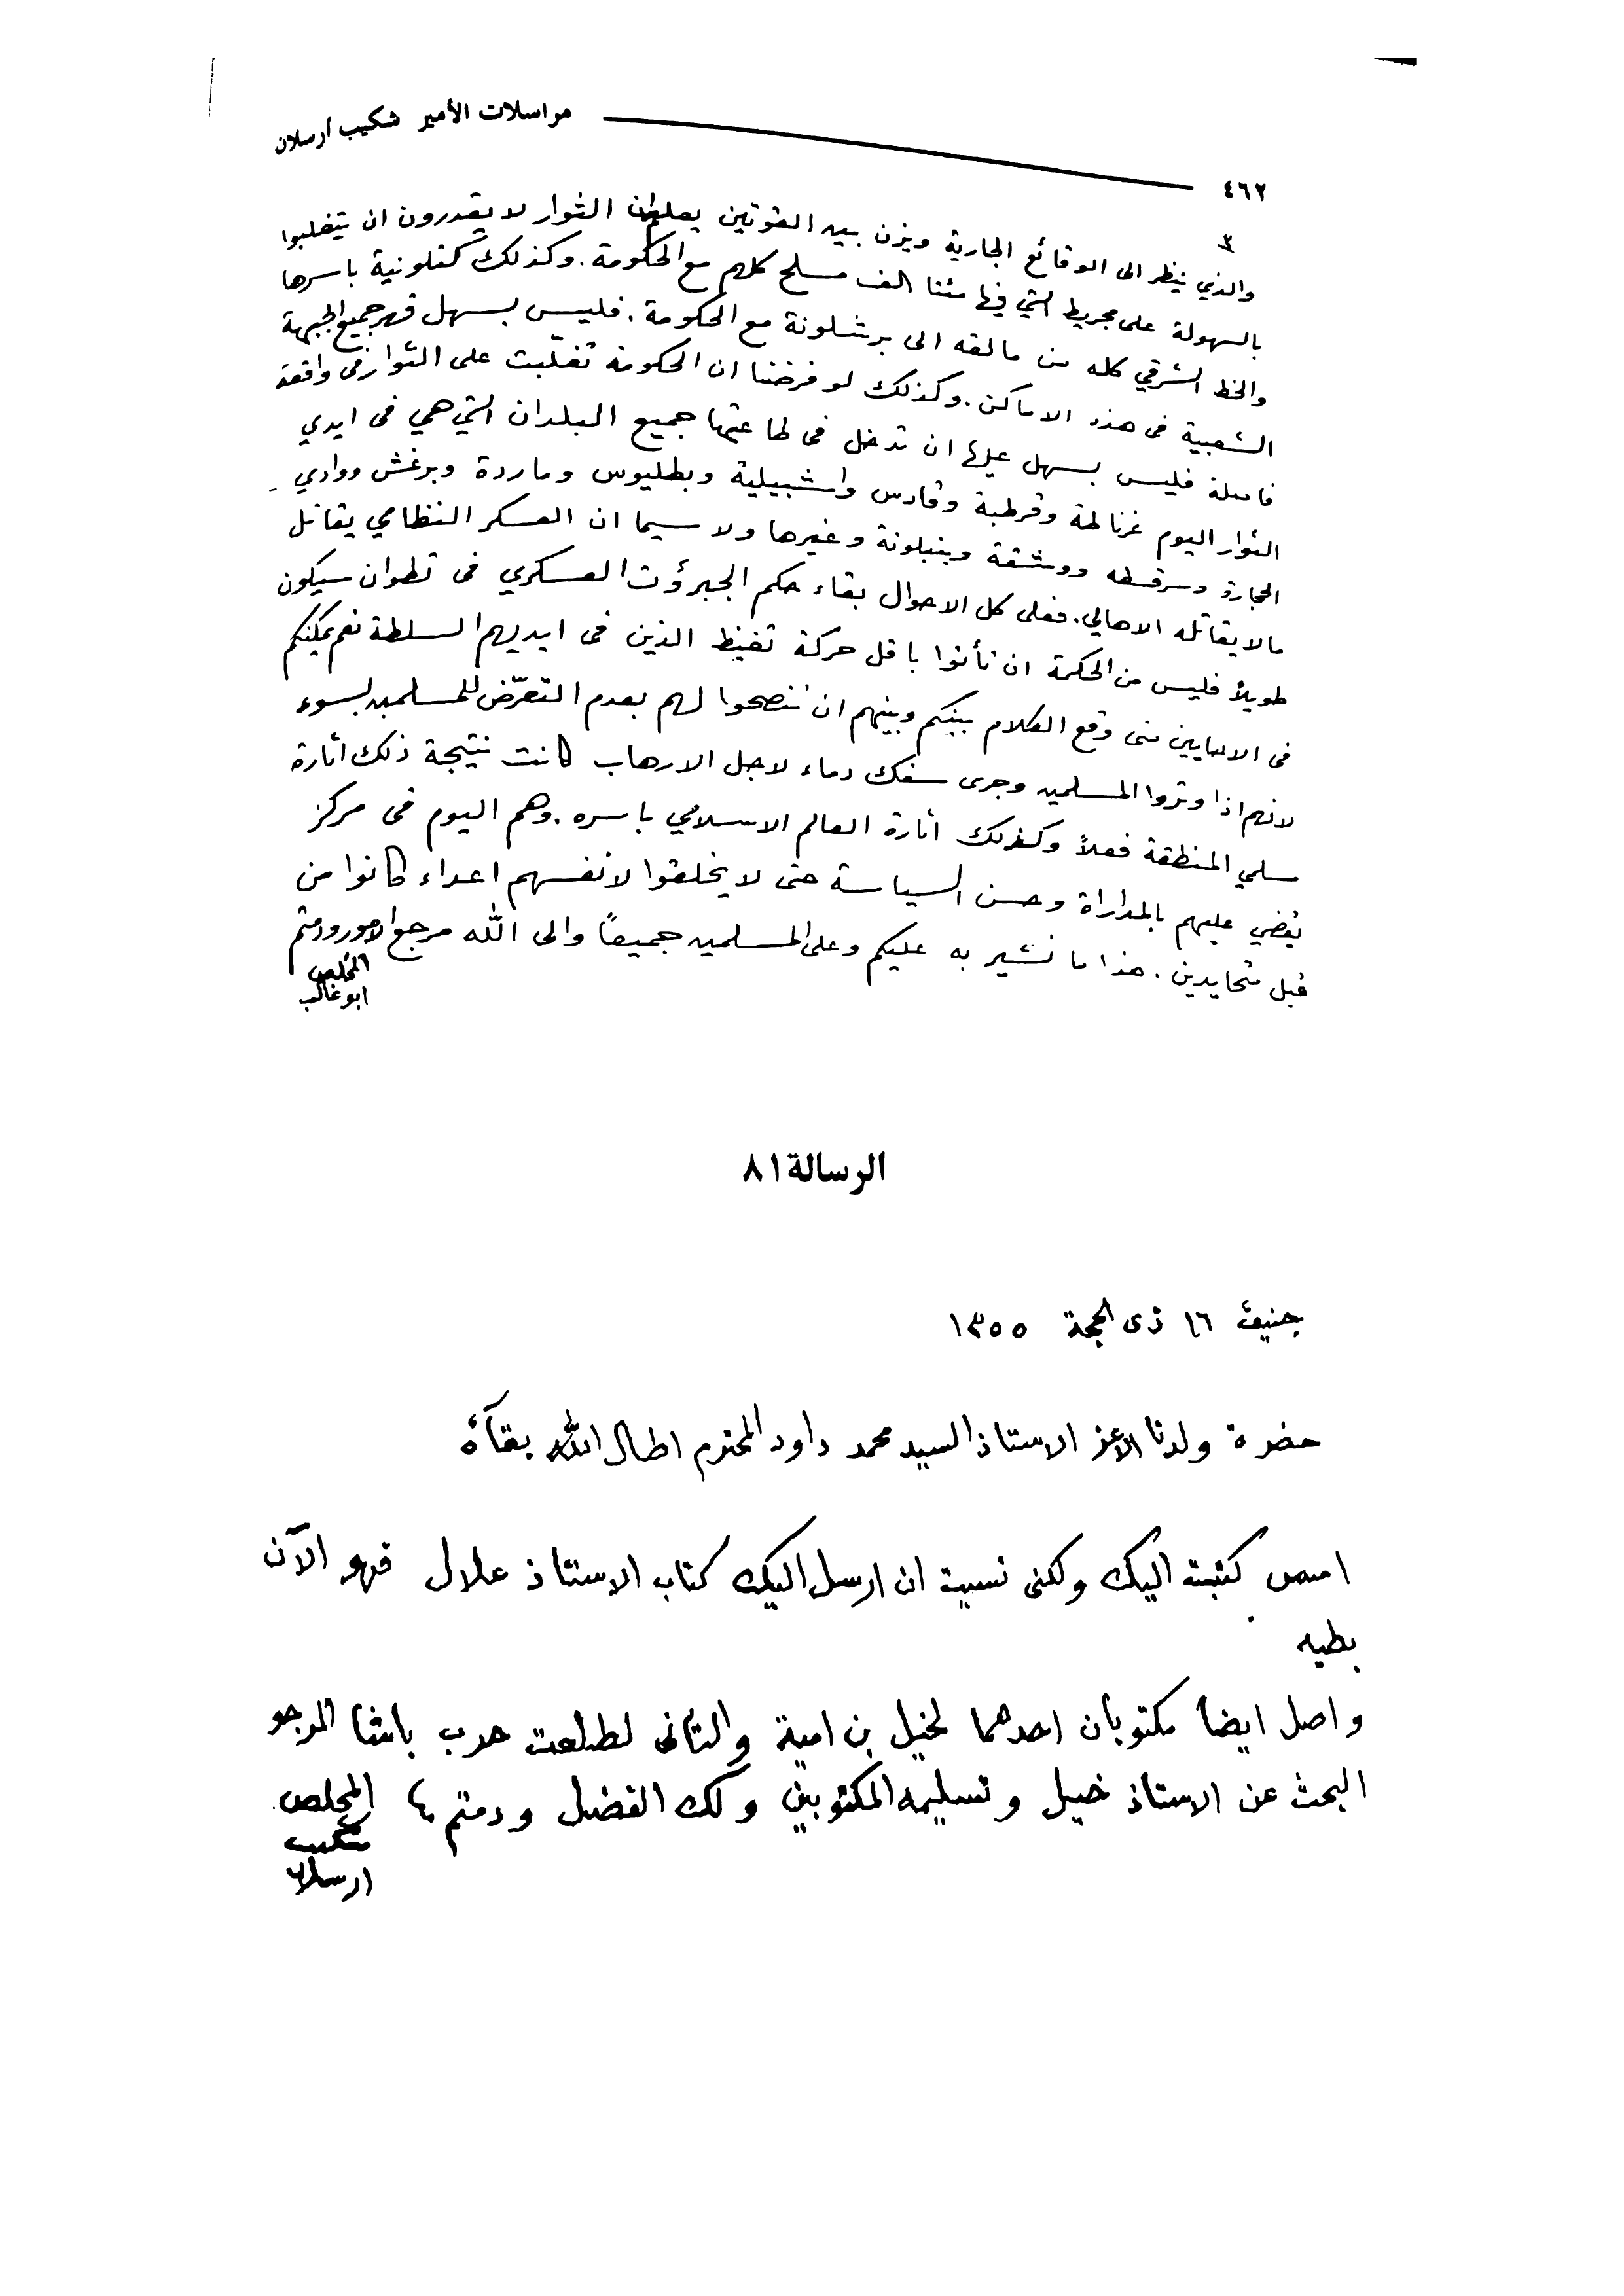 مراسلات الأمير شكيب أرسلان
٤٦٢
٣
والذي ينظر الى الوقائع الجارية ويزن بين القوتين يعلم ان الثوار لا يقدرون ان يتغلبوا
بالسهولة على مجريط التي فيها مئتا الف مسلح كلهم مع الحكومة. وكذلك كتلونية باسرها
والخط الشرقي كله من مالقه الى برشلونة مع الحكومة. فليس بسهل قهر جميع الجبهة
الشعبية فى هذه الاماكن. وكذلك لو فرضنا ان الحكومة تغلّبت على الثوار فى واقعة
فاصلة فليس بسهل عليها ان تدخل فى طاعتها جميع البلدان التي هي فى ايدي
الثوار اليوم غرناطة وقرطبة وقادس واشبيلية وبطليوس وماردة وبرغش ووادي
الحجارة وسرقسطه ووشقة وبنبلونة وغيرها ولا سيما ان العسكر النظامي يقاتل
مالا يقاتله الاهالي. فعلى كل الاحوال بقاء حكم الجبروت العسكري فى تطوان سيكون
طويلاً فليس من الحكمة ان تأتوا باقل حركة تغيظ الذين فى ايديهم السلطة نعم يمكنكم
فى الاحايين متى وقع الكلام بينكم وبينهم ان تنصحوا لهم بعدم التعرّض للمسلمين بسوء
لانهم اذا وتروا المسلمين وجرى سفك دماء لاجل الارهاب كانت نتيجة ذلك اثارة
مسلمي المنطقة فعلاً وكذلك اثارة العالم الاسلامي باسره. وهم اليوم فى مركز
يقضي عليهم بالمداراة وحسن السياسة حتى لا يخلقوا لانفسهم اعداء كانوا من
قبل محايدين. هذا ما نشير به عليكم وعلى المسلمين جميعاً والى الله مرجع الامور ودمتم
المخلص
ابو غالب
الرسالة ٨١
جنيف ١٦ ذى الحجة ١٣٥٥
حضرة ولدنا الاعز الاستاذ السيد محمد داود المحترم اطال الله بقآءه
امس كتبت اليك ولكنى نسيت ان ارسل اليك كتاب الاستاذ علال فهو الآن
بطيه
واصل ايضاً مكتوبان احدهما لخليل بن امية والثانى لطلعت حرب باشا المرجو
البحث عن الاستاذ خليل وتسليمه المكتوبين ولك الفضل ودمتم
المخلص
شكيب
ارسلان